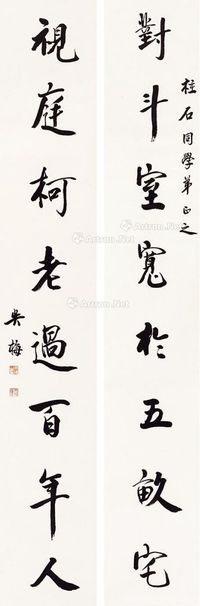 柱石同學弟正之
對斗室寬於五畝宅
視庭柯老過百年人
吳梅
Artron.Net
Artron.Net